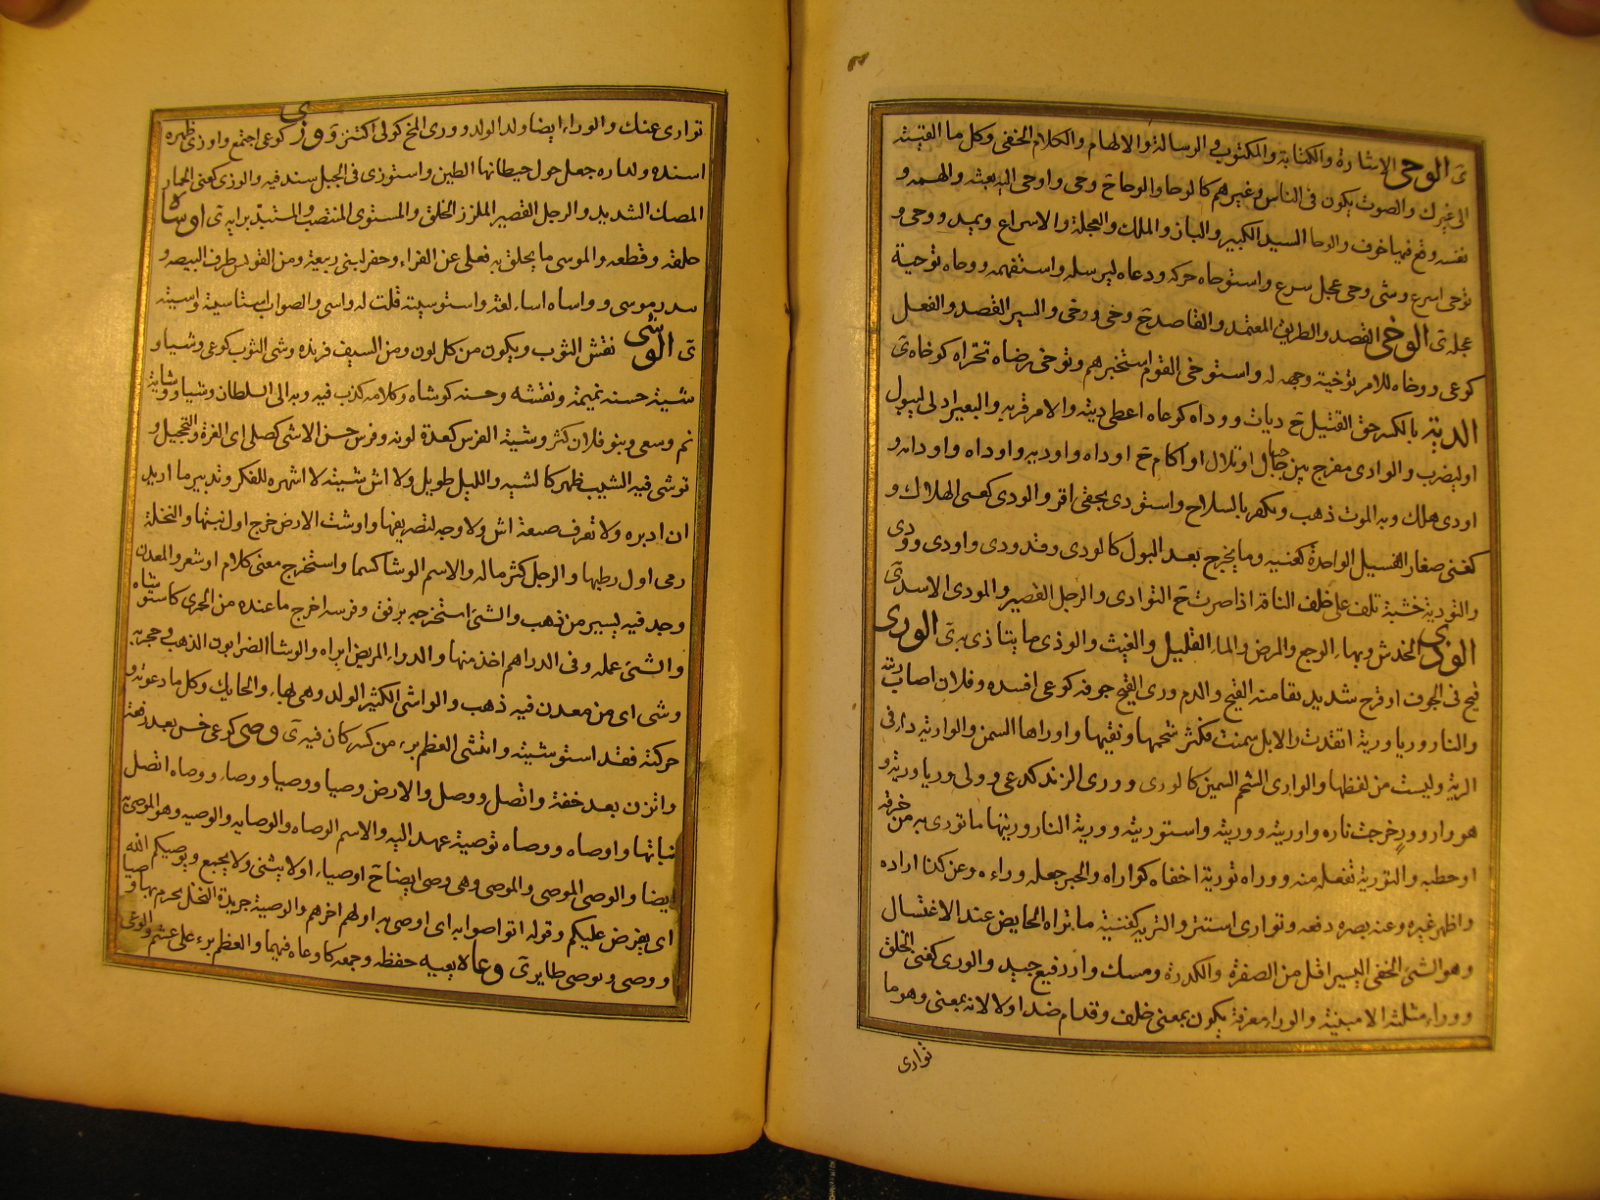 ى الوحى الاشارة والكتابة والمكتوب والرسالة والالهام والكلام الخفى وكل ما القيته
الى غيرك والصوت يكون فى الناس وغيرهم كالوحا والوحاة ج وحى واوحى اليه بعثه والهمه و
نفسه وقع فيها خوف والوحا السيد الكبير والنار والملك والعجلة والاسراع ويمد ووحى و
توحى اسرع وشى وحى عجل سرع واستوحاه حركه ودعاه ليرسله واستفهمه ووحاه توحية
عجله ى الوخى القصد والطريق المعتمد والقاصد ج وخى ووخى والسير القصد والفعل
كوعى ووخاه للامر توخية وجهه له واستوخى القوم استخبرهم وتوخى رضاه تحراه كوخاه ى
الدية بالكسر حق القتيل ج ديات ووداه كوعاه اعطى ديته والامر قربه والبعير ادلى ليبول
او ليضرب والوادى مفرج بين جبال او تلال او اكام ج اوداه واودية واوداه واودايه و
اودى هلك وبه الموت ذهب وتكفر بالسلاح واستودى بحقى اقر والودى كفتى الهلاك و
كغنى صغار الفسيل الواحدة كغنية وما يخرج بعد البول كالودى وقد ودى واودى وودى
والتودية خشبة تلف على خلف الناقة اذا صرت ج التوادى والرجل القصير والمودى الاسد ى
الوذى الخدش وبهاء الوجع والمرض والماء القليل والغيث والوذى ما يتاذى به ى الورى
قيح فى الجوف او قرح شديد يقا منه القيح والدم ورى القيح جوفه كوعى افسده وفلان اصاب رئته
والنار وريا ورية اتقدت والابل سمنت فكثر شحمها ونقيها واوراها السمن والوارية داء فى
الرية وليست من لفظها والوارى الشحم السمين كالورى وورى الزند كدعى وولى وريا ورية و
هو وار وورى خرجت ناره واوريته ووريته واستوريته وورية النار وريتها ما تورى به من خرقة
او حطبة والتورية تفعلة منه ووراه تورية اخفاه كواراه والخبر جعله وراءه وعن كذا اراده
واظهر غيره وعنه بصره دفعه وتوارى استتر والترية كغنية ما تراه الحايض عند الاغتسال
وهو الشئ الخفى اليسير اقل من الصفرة والكدرة ومسك وار رفيع جيد والورى كفتى الخلق
ووراء مثلثة الاخر مبنية والوراء معرفة يكون بمعنى خلف وقدام ضد اولا لانه بمعنى وهو ما
توارى
توارى عنك والوراء ايضا ولد الولد وورى المخ كولى اكتنز و وزى كوعى اجتمع واوزى ظهره
اسنده ولداره جعل حول حيطانها الطين واستوزى فى الجبل سند فيه والوزى كفتى الحمار
المصك الشديد والرجل القصير الملزز الخلق والمستوزى المنتصب والمستبد برايه ى اوساه
حلقه وقطعه والموسى ما يحلق به فعلى عن الفراء وحفر لبنى ربيعة ومن القونس طرف البيضه و
سدر موسى وواساه اساه لغة واستوسيته قلت له واسى والصواب استاسيته واسيته
ى الوشى نقش الثوب ويكون من كل لون ومن السيف فرنده وشى الثوب كوعى وشيا و
شية حسنة نمنمه ونقشه وحسنه كوشاه وكلامه كذب فيه وبه الى السلطان وشيا ووشاية
نم وسعى وبنو فلان كثروا وشية الفرس كعدة لونه وفرس حسن الاشى كصلى اى الغرة والتحجيل و
توشى فيه الشيب ظهر كالشيه والليل طويل ولا اش شيته لا اشهره للفكر وتدبير ما اريد
ان ادبره ولا تعرف صيغة اش ولا وجه لتصريفها واوشت الارض خرج اول نبتها والنخلة
رمى اول رطبها والرجل كثر ماله والاسم الوشا كسما واستخرج معنى كلام او شعر والمعدن
وجد فيه يسير من ذهب والشئ استخرجه برفق وفرسه اخرج ما عنده من الجرى كاستوشاه
والشئ علمه وفى الدراهم اخذ منها والدواء المريض ابراه والوشا الضرابون الذهب وحجر به
وشى اى من معدن فيه ذهب والواشى الكثير الولد وهى بهاء والحايك وكل ما دعوته و
حركته فقد استوشيته وايتشى العظم برء من كسر كان فيه ى وصى كوعى خس بعد رفعة
واتزن بعد خفة واتصل ووصل والارض وصيا ووصيا ووصاء ووصاه اتصل
نباتها واوصاه ووصاه توصية عهد اليه والاسم الوصاه والوصايه والوصيه وهو الموصى به
ايضا والوصى الموصى والموصى وهى وصى ايضا ج اوصياء او لا يثنى ولا يجمع ويوصيكم الله
اى يفرض عليكم وقوله اتواصوا به اى اوصى به اولهم اخرهم والوصية جريدة النخل يحزم بها ج وصى
ووصى ويوصى طاير ى وعاه يعيه حفظه وجمعه كاوعاه فيهما والعظم برء على عثم والوعى